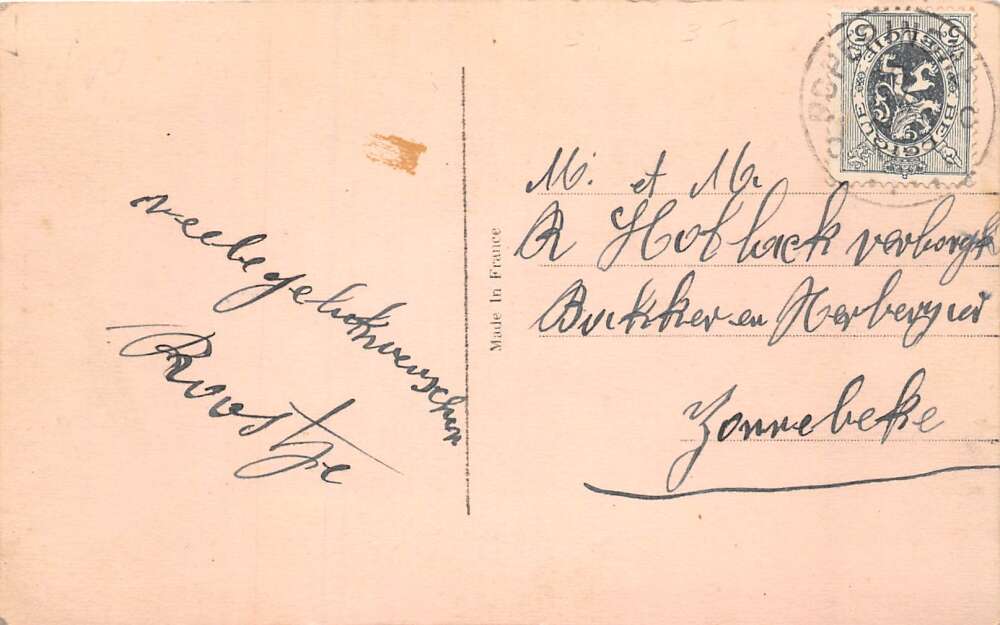 veelegelukwenschen
Roostje
Made In France
M. et M.
R Hoflack verborgh
Bakker en Herbergier
Zonnebeke
5 BELGIQUE BELGIE 5